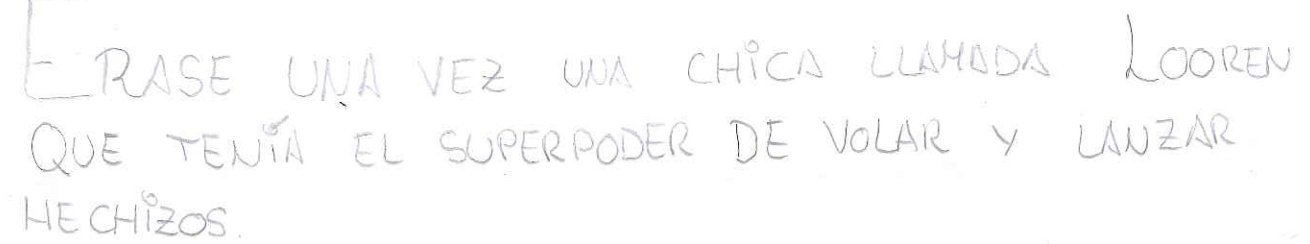 ERASE UNA VEZ UNA CHICA LLAMADA LOOREN
QUE TENÍA EL SUPERPODER DE VOLAR Y LANZAR
HECHIZOS.